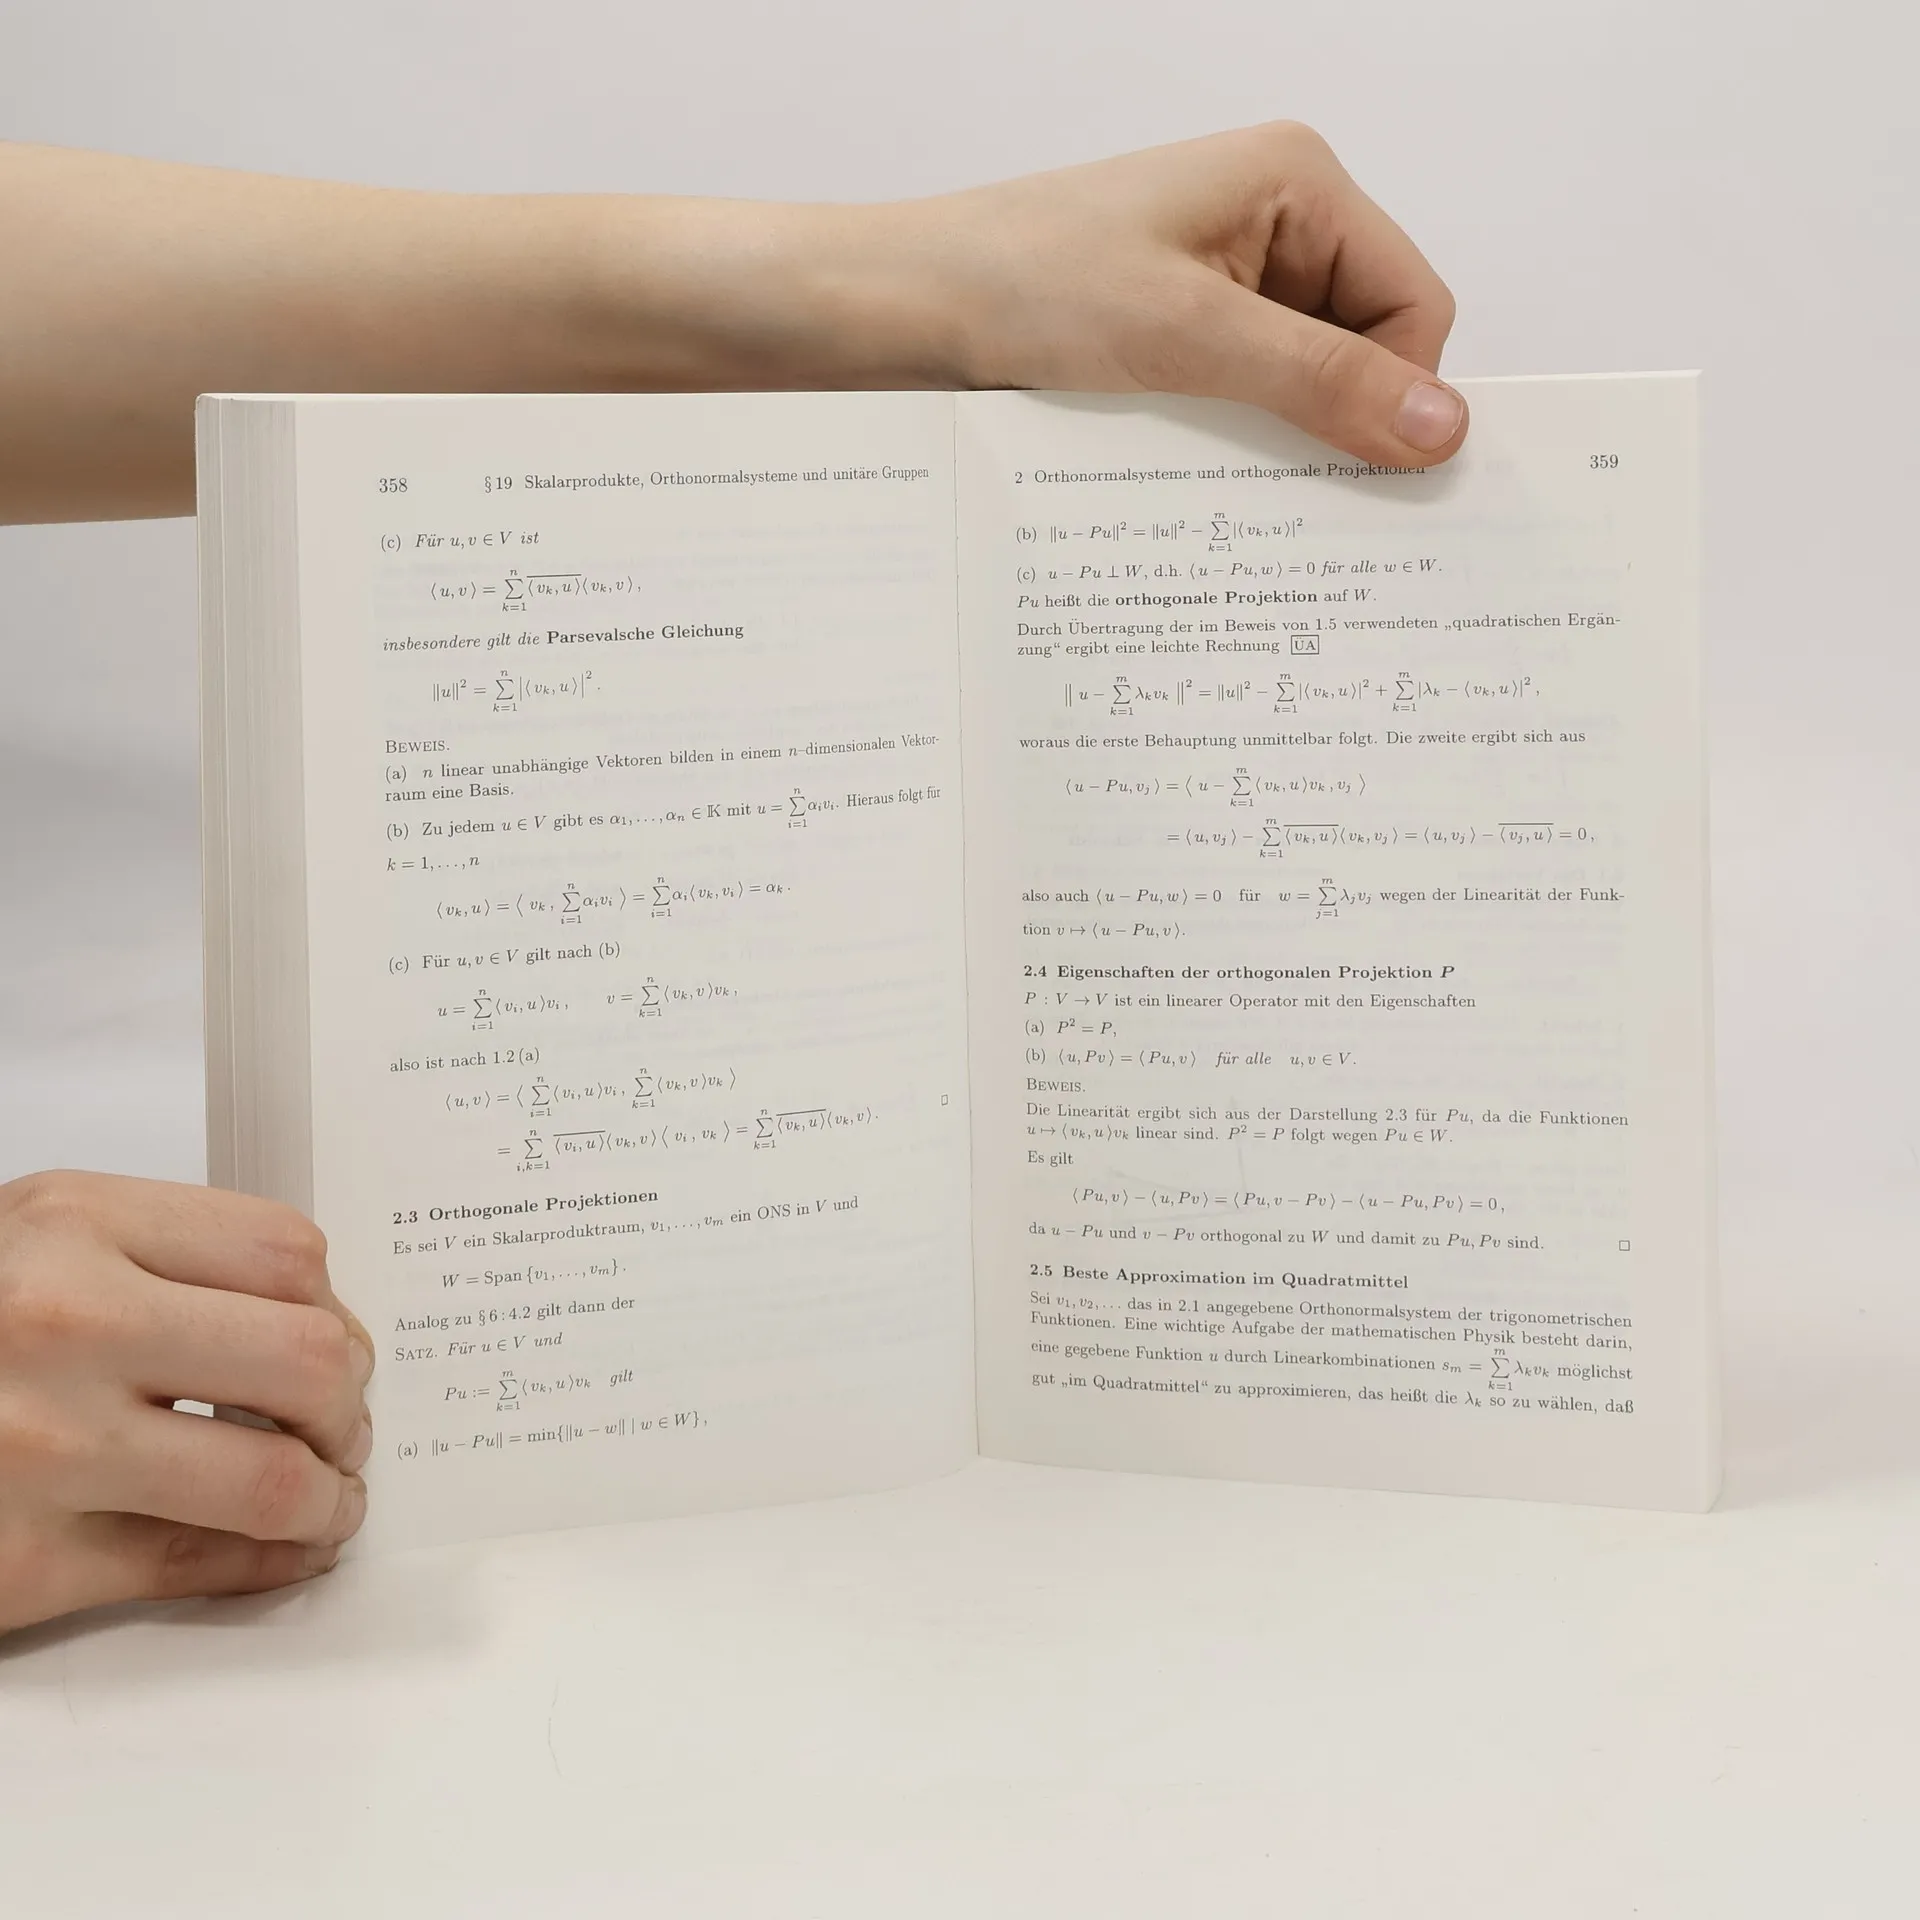 358 § 19 Skalarprodukte, Orthonormalsysteme und unitäre Gruppen
(c) Für u, v ∈ V ist
⟨u, v⟩ = ∑_{k=1}^{n} \overline{⟨v_k, u⟩}⟨v_k, v⟩,
insbesondere gilt die Parsevalsche Gleichung
‖u‖² = ∑_{k=1}^{n} |⟨v_k, u⟩|².
BEWEIS.
(a) n linear unabhängige Vektoren bilden in einem n–dimensionalen Vektor-
raum eine Basis.
(b) Zu jedem u ∈ V gibt es α₁, . . . , αₙ ∈ 𝕂 mit u = ∑_{i=1}^{n} α_i v_i. Hieraus folgt für
k = 1, . . . , n
⟨v_k, u⟩ = ⟨v_k, ∑_{i=1}^{n} α_i v_i⟩ = ∑_{i=1}^{n} α_i⟨v_k, v_i⟩ = α_k.
(c) Für u, v ∈ V gilt nach (b)
u = ∑_{i=1}^{n} ⟨v_i, u⟩v_i, v = ∑_{k=1}^{n} ⟨v_k, v⟩v_k,
also ist nach 1.2 (a)
⟨u, v⟩ = ⟨∑_{i=1}^{n} ⟨v_i, u⟩v_i, ∑_{k=1}^{n} ⟨v_k, v⟩v_k⟩
= ∑_{i,k=1}^{n} \overline{⟨v_i, u⟩}⟨v_k, v⟩⟨v_i, v_k⟩ = ∑_{k=1}^{n} \overline{⟨v_k, u⟩}⟨v_k, v⟩. □
2.3 Orthogonale Projektionen
Es sei V ein Skalarproduktraum, v₁, . . . , v_m ein ONS in V und
W = Span {v₁, . . . , v_m}.
Analog zu § 6 : 4.2 gilt dann der
SATZ. Für u ∈ V und
Pu := ∑_{k=1}^{m} ⟨v_k, u⟩v_k gilt
(a) ‖u − Pu‖ = min{‖u − w‖ | w ∈ W},
2 Orthonormalsysteme und orthogonale Projektionen 359
(b) ‖u − Pu‖² = ‖u‖² − ∑_{k=1}^{m} |⟨v_k, u⟩|²
(c) u − Pu ⊥ W, d.h. ⟨u − Pu, w⟩ = 0 für alle w ∈ W.
Pu heißt die orthogonale Projektion auf W.
Durch Übertragung der im Beweis von 1.5 verwendeten „quadratischen Ergän-
zung“ ergibt eine leichte Rechnung ÜA
‖u − ∑_{k=1}^{m} λ_k v_k‖² = ‖u‖² − ∑_{k=1}^{m} |⟨v_k, u⟩|² + ∑_{k=1}^{m} |λ_k − ⟨v_k, u⟩|²,
woraus die erste Behauptung unmittelbar folgt. Die zweite ergibt sich aus
⟨u − Pu, v_j⟩ = ⟨u − ∑_{k=1}^{m} ⟨v_k, u⟩v_k, v_j⟩
= ⟨u, v_j⟩ − ∑_{k=1}^{m} \overline{⟨v_k, u⟩}⟨v_k, v_j⟩ = ⟨u, v_j⟩ − \overline{⟨v_j, u⟩} = 0,
also auch ⟨u − Pu, w⟩ = 0 für w = ∑_{j=1}^{m} λ_j v_j wegen der Linearität der Funk-
tion v ↦ ⟨u − Pu, v⟩.
2.4 Eigenschaften der orthogonalen Projektion P
P : V → V ist ein linearer Operator mit den Eigenschaften
(a) P² = P,
(b) ⟨u, Pv⟩ = ⟨Pu, v⟩ für alle u, v ∈ V.
BEWEIS.
Die Linearität ergibt sich aus der Darstellung 2.3 für Pu, da die Funktionen
u ↦ ⟨v_k, u⟩v_k linear sind. P² = P folgt wegen Pu ∈ W.
Es gilt
⟨Pu, v⟩ − ⟨u, Pv⟩ = ⟨Pu, v − Pv⟩ − ⟨u − Pu, Pv⟩ = 0,
da u − Pu und v − Pv orthogonal zu W und damit zu Pu, Pv sind. □
2.5 Beste Approximation im Quadratmittel
Sei v₁, v₂, . . . das in 2.1 angegebene Orthonormalsystem der trigonometrischen
Funktionen. Eine wichtige Aufgabe der mathematischen Physik besteht darin,
eine gegebene Funktion u durch Linearkombinationen s_m = ∑_{k=1}^{m} λ_k v_k möglichst
gut „im Quadratmittel“ zu approximieren, das heißt die λ_k so zu wählen, daß